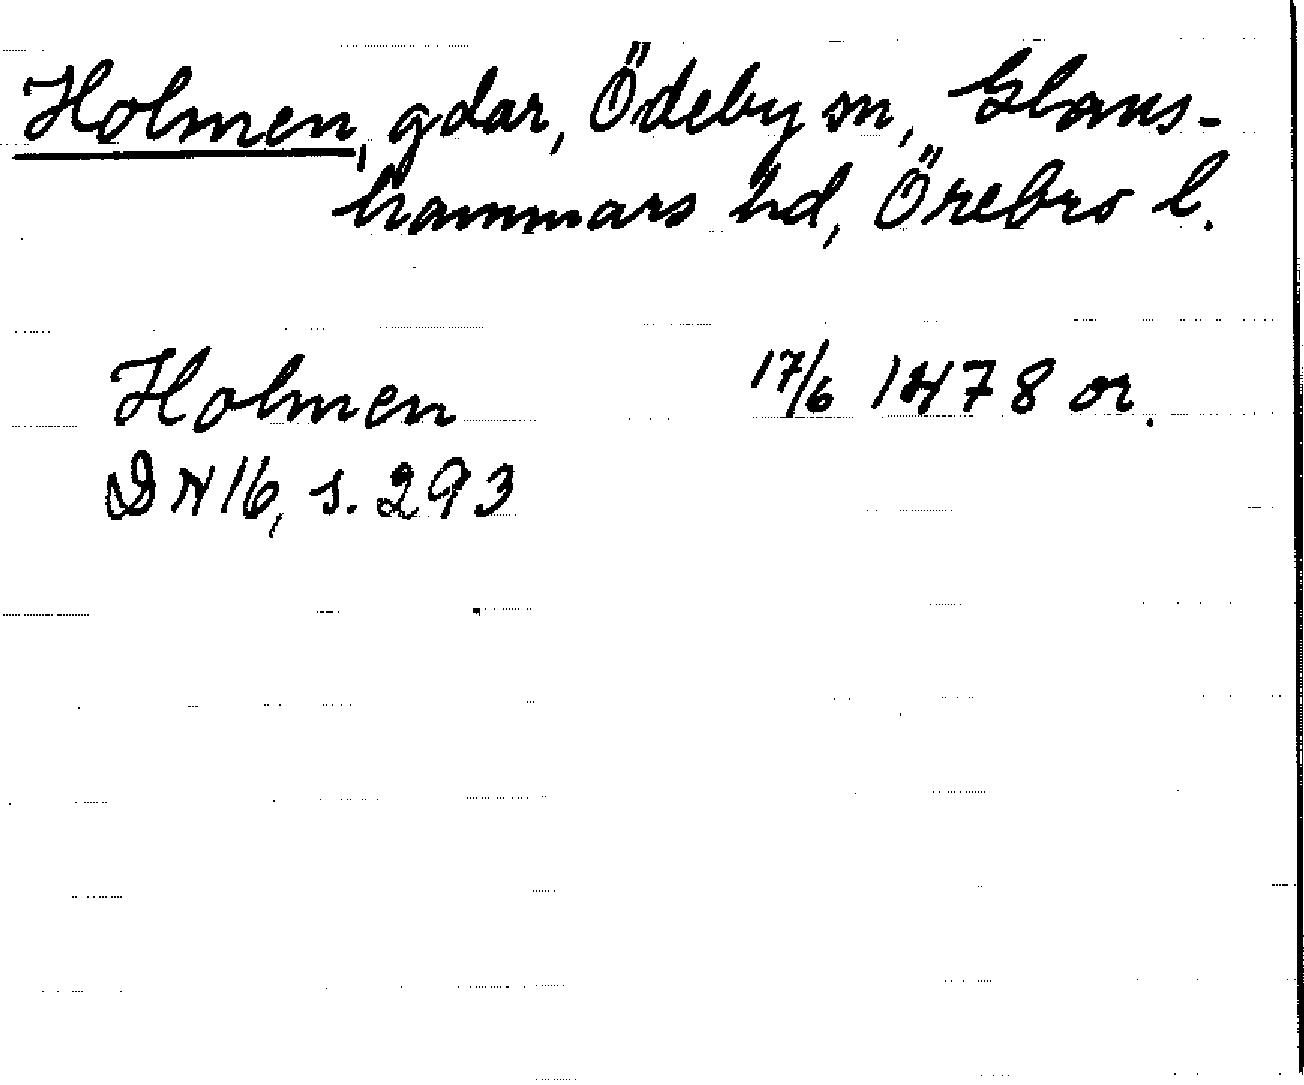 Holmen, gdar, Ödeby sn, Glans-
hammars hd, Örebro l.
Holmen 17/6 1478 or.
DN 16, s. 293